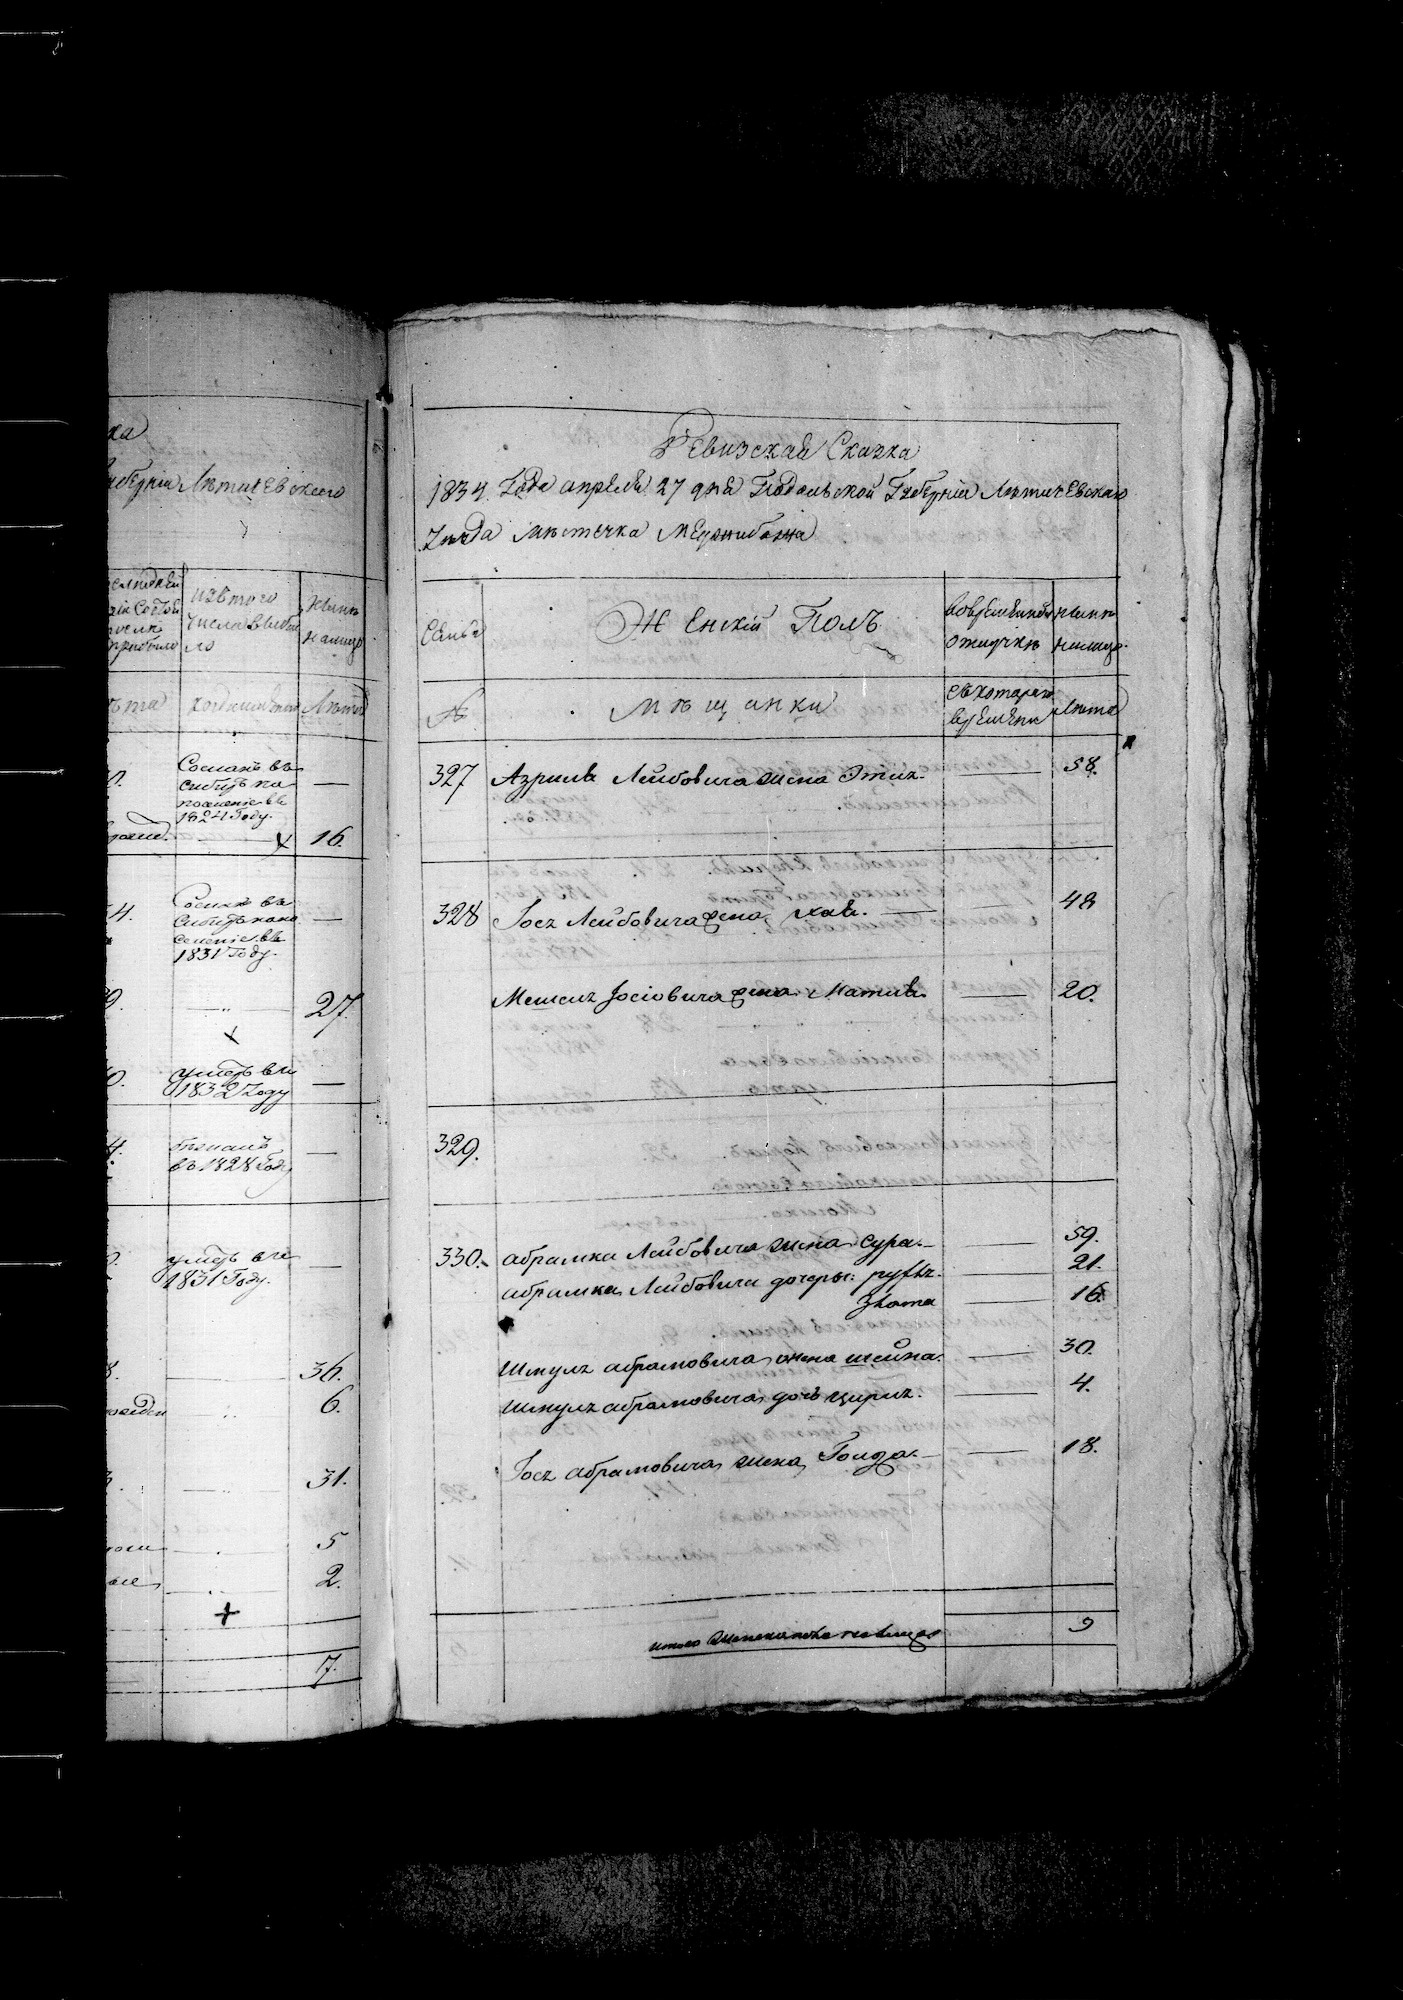 ка
Губерніи Лѣтичевского
изътого
числа выбы
ло
нынѣ
налицо
лѣта
когда именно
Лѣта
Сосланъ въ
сибирь на
поселеніе въ
1824 Году.
16.
Сосланъ въ
Сибирь на по
селеніе въ
1831 Году.
27.
умеръ въ
1832 Году
бѣжалъ
въ 1828 Году
умеръ въ
1831 Году.
36.
6.
31.
5
2.
7.
Ревизская Сказка
1834 Года апреля 27 дня Подольской Губерніи Лѣтичевскаго
Уѣзда мѣстечка Меджибожа
Семьи
Женскій Полъ
вовременной
отлучкѣ
нынѣ
налицо.
№
Мѣщанки
съкотораго
времени
Лѣта
327 Азриля Лейбовича жена Этих. 58.
328 Іося Лейбовича жена Хая. 48
Мошки Іосіовича жена Матля 20.
329.
330. абрамка Лейбовича жена Сура. 59.
абрамка Лейбовича дочеры: руфль. 21.
Злота 16.
Шмуля абрамовича жена шейна. 30.
Шмуля абрамовича дочь ципра. 4.
Іося абрамовича жена Голда. 18.
итого Женска пола налицо 9